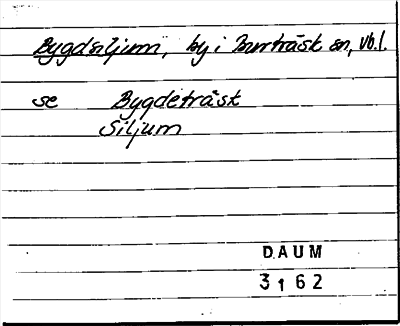 Bygdsiljum, by i Burträsk sn, vb.l.
se Bygdeträsk
Siljum
DAUM
3162